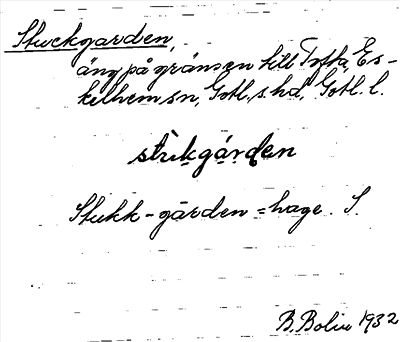 Stuckgarden,
äng på gränsen till Tofta, Es-
kelhem sn, Gotl. s. hd, Gotl. l.
stùkgáṛden
Stukk-gården = hage. S.
B. Bolin 1932